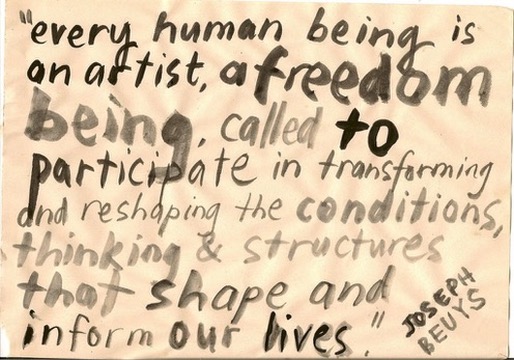 "every human being is
an artist, a freedom
being, called to
participate in transforming
and reshaping the conditions,
thinking & structures
that shape and
inform our lives."
JOSEPH
BEUYS